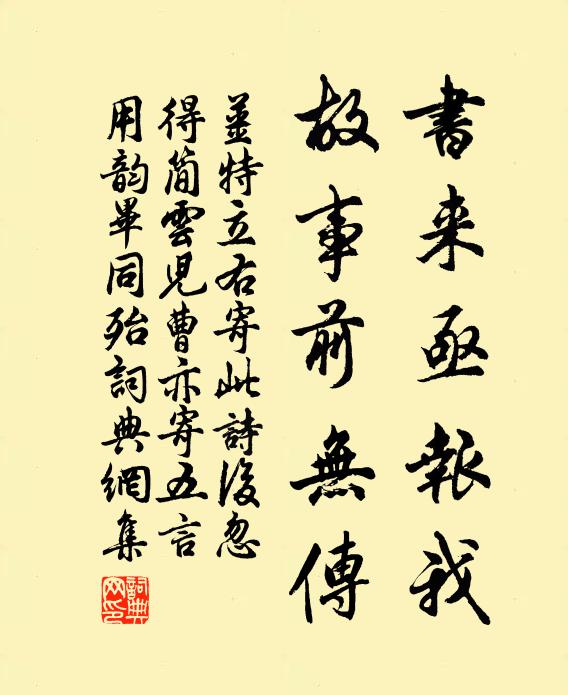 書来亟報我
故事前無傳
並特立右寄此詩後忽
得簡雲児曹亦寄五言
用韵畢同殆詞典網集
詞典網印